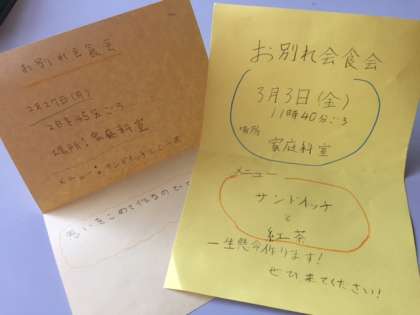 お別れ会食会
2月27日(月)
場所:家庭科室
メニュー:サンドイッチ
思いをこめて作るので
お別れ会食会
3月3日(金)
11時40分ごろ
場所
家庭科室
メニュー
サンドイッチ
と
紅茶
一生懸命作ります!
ぜひ来てください!